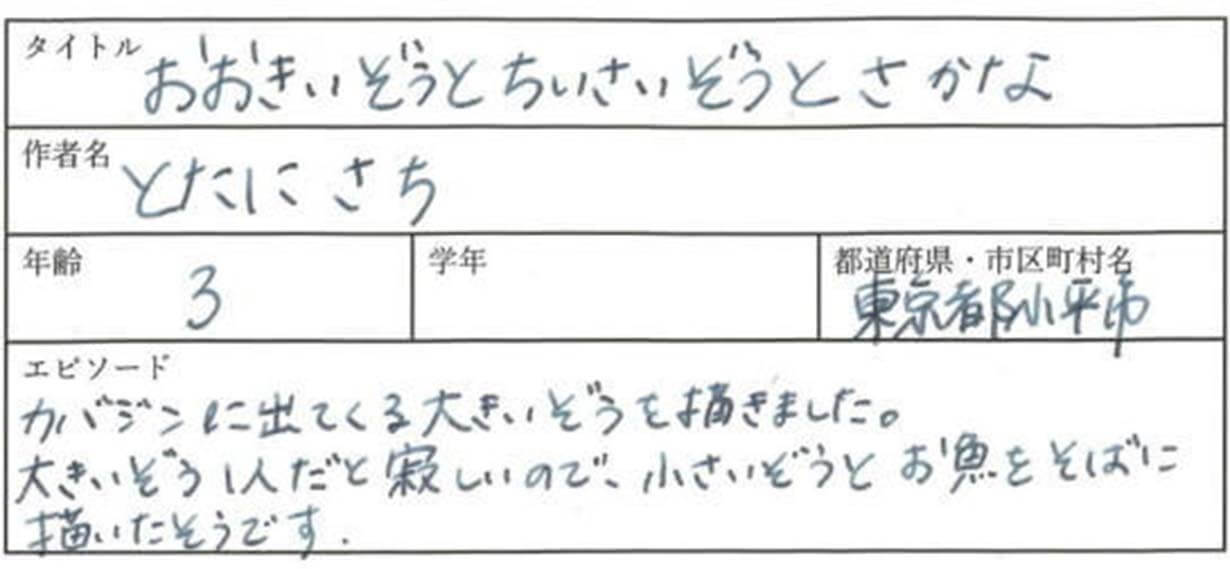 タイトル おおきいぞうとちいさいぞうとさかな
作者名 とたにさち
年齢 3 学年 都道府県・市区町村名 東京都小平市
エピソード
カバジンに出てくる大きいぞうを描きました。
大きいぞう1人だと寂しいので、小さいぞうとお魚をそばに
描いたそうです.